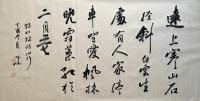 遠上寒山石
徑斜白雲生
處有人家停
車坐愛楓林
晚霜葉紅於
二月花